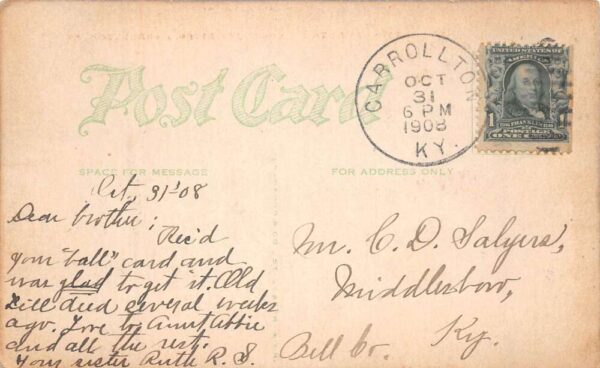 Post Card
CARROLLTON
OCT
31
6 PM
1908
KY.
UNITED STATES OF AMERICA
1 FRANKLIN
POSTAGE
ONE
SPACE FOR MESSAGE
FOR ADDRESS ONLY
Oct. 31'08
Dear brother;
Rec'd
your "ball" card and
was glad to get it. Old
died several weeks
ago. Love to Aunt Abbie
and all the rest.
Your sister Ruth R. S.
Mr. C. D. Salyers,
Middlesboro,
Ky.
Bell Co.